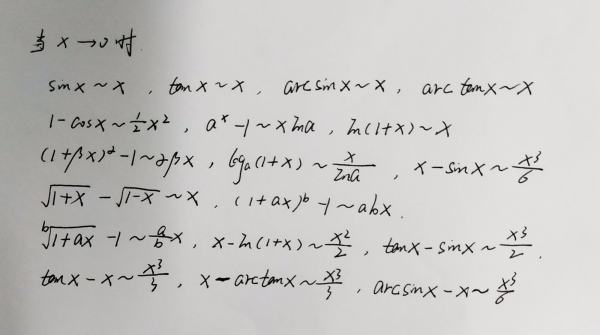 当 x→0 时
sinx~x , tanx~x , arcsinx~x , arctanx~x
1-cosx~\frac{1}{2}x² , aˣ-1~xlna , ln(1+x)~x
(1+βx)^α-1~αβx , log_a(1+x)~\frac{x}{lna} , x-sinx~\frac{x³}{6}
√(1+x) - √(1-x) ~x , (1+ax)^b-1~abx .
\sqrt[b]{1+ax} -1~\frac{a}{b}x , x-ln(1+x)~\frac{x²}{2} , tanx-sinx~\frac{x³}{2} .
tanx-x~\frac{x³}{3} , x-arctanx~\frac{x³}{3} , arcsinx-x~\frac{x³}{6}